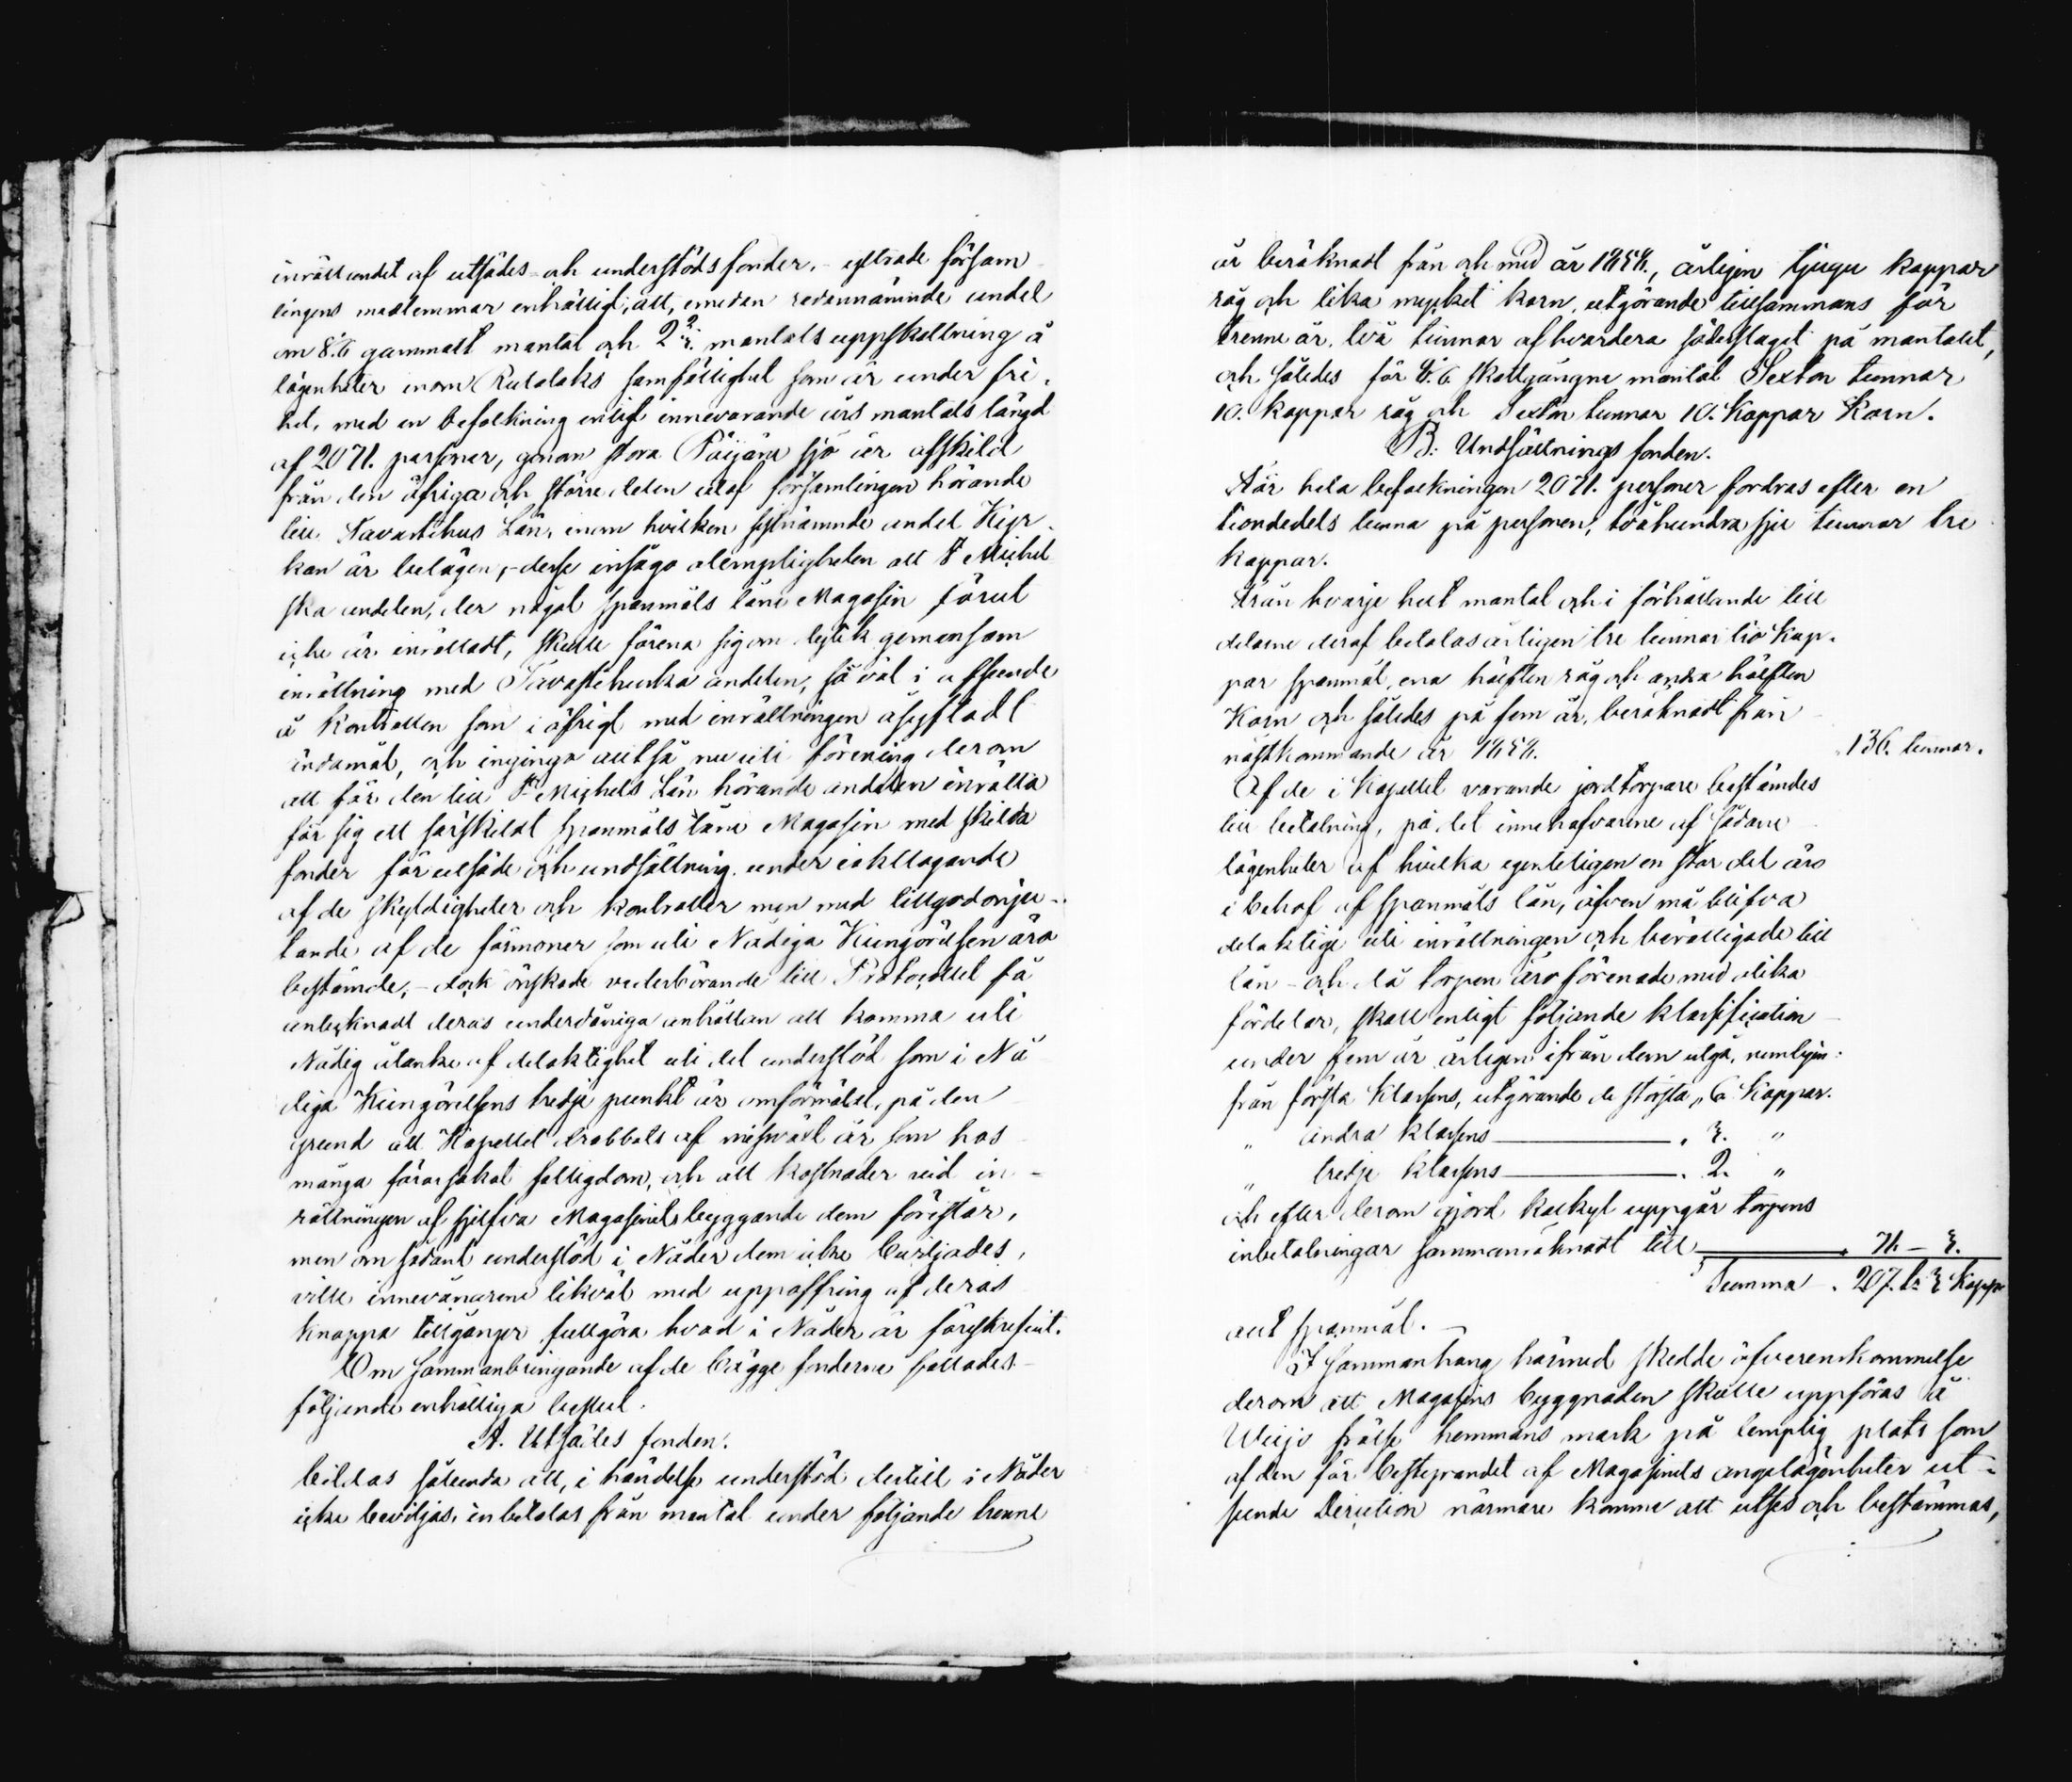 inrättandet af utsädes- och understödsfonder, - yttrade försam
lingens medlemmar enhälligt, att, emedan redannämnde andel
om 8.6 gammalt mantal och 2 mantals uppskattning å
lägenheter inom Rutalaks samfällighet som är under fri-
het, med en befolkning enligt innevarande års mantals längd
af 2071. personer, genom stora Päijäne sjö är afskild
från den öfriga och större delen utaf församlingen hörande
till Tavastehus Län, inom hvilken sistnämnde andel Kyr-
kan är belägen, - desse insågo olempligheten att St Michel
ska andelen, der något spanmåls låne Magasin förut
icke är inrättadt, skulle förena sig om dylik gemensam
inrättning med Tavastehuska andelen, så väl i afseende
å kontrollen som i öfrigt med inrättningen åsyftadt
ändamål, och ingingo alltså nu uti förening derom
att för den till St Michels Län hörande andelen inrätta
för sig ett särskildt spanmåls låne Magasin med skilda
fonder för utsäde och undsättning under iakttagande
af de skyldigheter och kontroller men med tillgodonju-
tande af de förmoner som uti Nådiga Kungörelsen äro
bestämde, - dock önskade vederbörande till Protocollet få
anteknadt deras underdåniga anhållan att komma uti
Nådig åtanke af delaktighet uti det understöd som i Nå
diga Kungörelsens tredje punkt är omförmäldt, på den
grund att Kapellet drabbats af missväxt år som hos
många förorsakat fattigdom, och att kostnader vid in-
rättningen af sjelfva Magasinets byggande dem förestår,
men om sådant understöd i Nåder dem icke beviljades,
ville innevånarene likväl med uppoffring af deras
knappa tillgånger fullgöra hvad i Nåder är föreskrifvit.
Om sammanbringande af de bägge fonderne fattades
följande enhälliga beslut.
A. Utsädes fonden:
bildas sålunda att, i händelse understöd dertill i Nåder
icke beviljas, inbetalas från mantal under följande trenne
år beräknadt från och med år 1858, årligen tjugu kappar
råg och lika mycket korn, utgörande tillsammans för
trenne år, två tunnor af hvardera sädeslaget på mantalet,
och således för 8.6. skattgångne mantal Sexton tunnor
10. kappar råg och Sexton tunnor 10. Kappar Korn.
B: Undsättnings fonden.
För hela befolkningen 2071. personer fordras efter en
tiondedels tunna på personen, tvåhundra sju tunnor tre
kappar.
Från hvarje helt mantal och i förhållande till
delarne deraf betalas årligen tre tunnor tio Kap-
par spanmål, ena hälften råg och andra hälften
Korn och således på fem år, beräknadt från
nästkommande år 1858. 136. tunnor.
Af de i Kapellet varande jordtorpare bestämdes
till betalning, på det innehafvarne af sådane
lägenheter af hvilka egenteligen en stor del äro
i behof af spanmåls lån, äfven må blifva
delaktige uti inrättningen och berättigade till
lån - och då torpen äro förenade med olika
fördelar, skall enligt följande klassification
under fem år årligen ifrån dem utgå, nemligen:
från första Klassens, utgörande de största, 6 Kappar.
" andra klassens 3. "
" tredje klassens 2. "
och efter derom gjord kalkyl uppgår torpens
inbetalningar sammanräknadt till 71 - 3.
Summa 207. tr 3 Kappr
allt spanmål. -
I sammanhang härmed skedde öfverenskommelse
derom att Magasins byggnaden skulle uppföras å
frälse hemmans mark på lemplig plats som
af den för bestyrandet af Magasinets angelägenheter ut-
seende Direction närmare komme att utses och bestämmas,